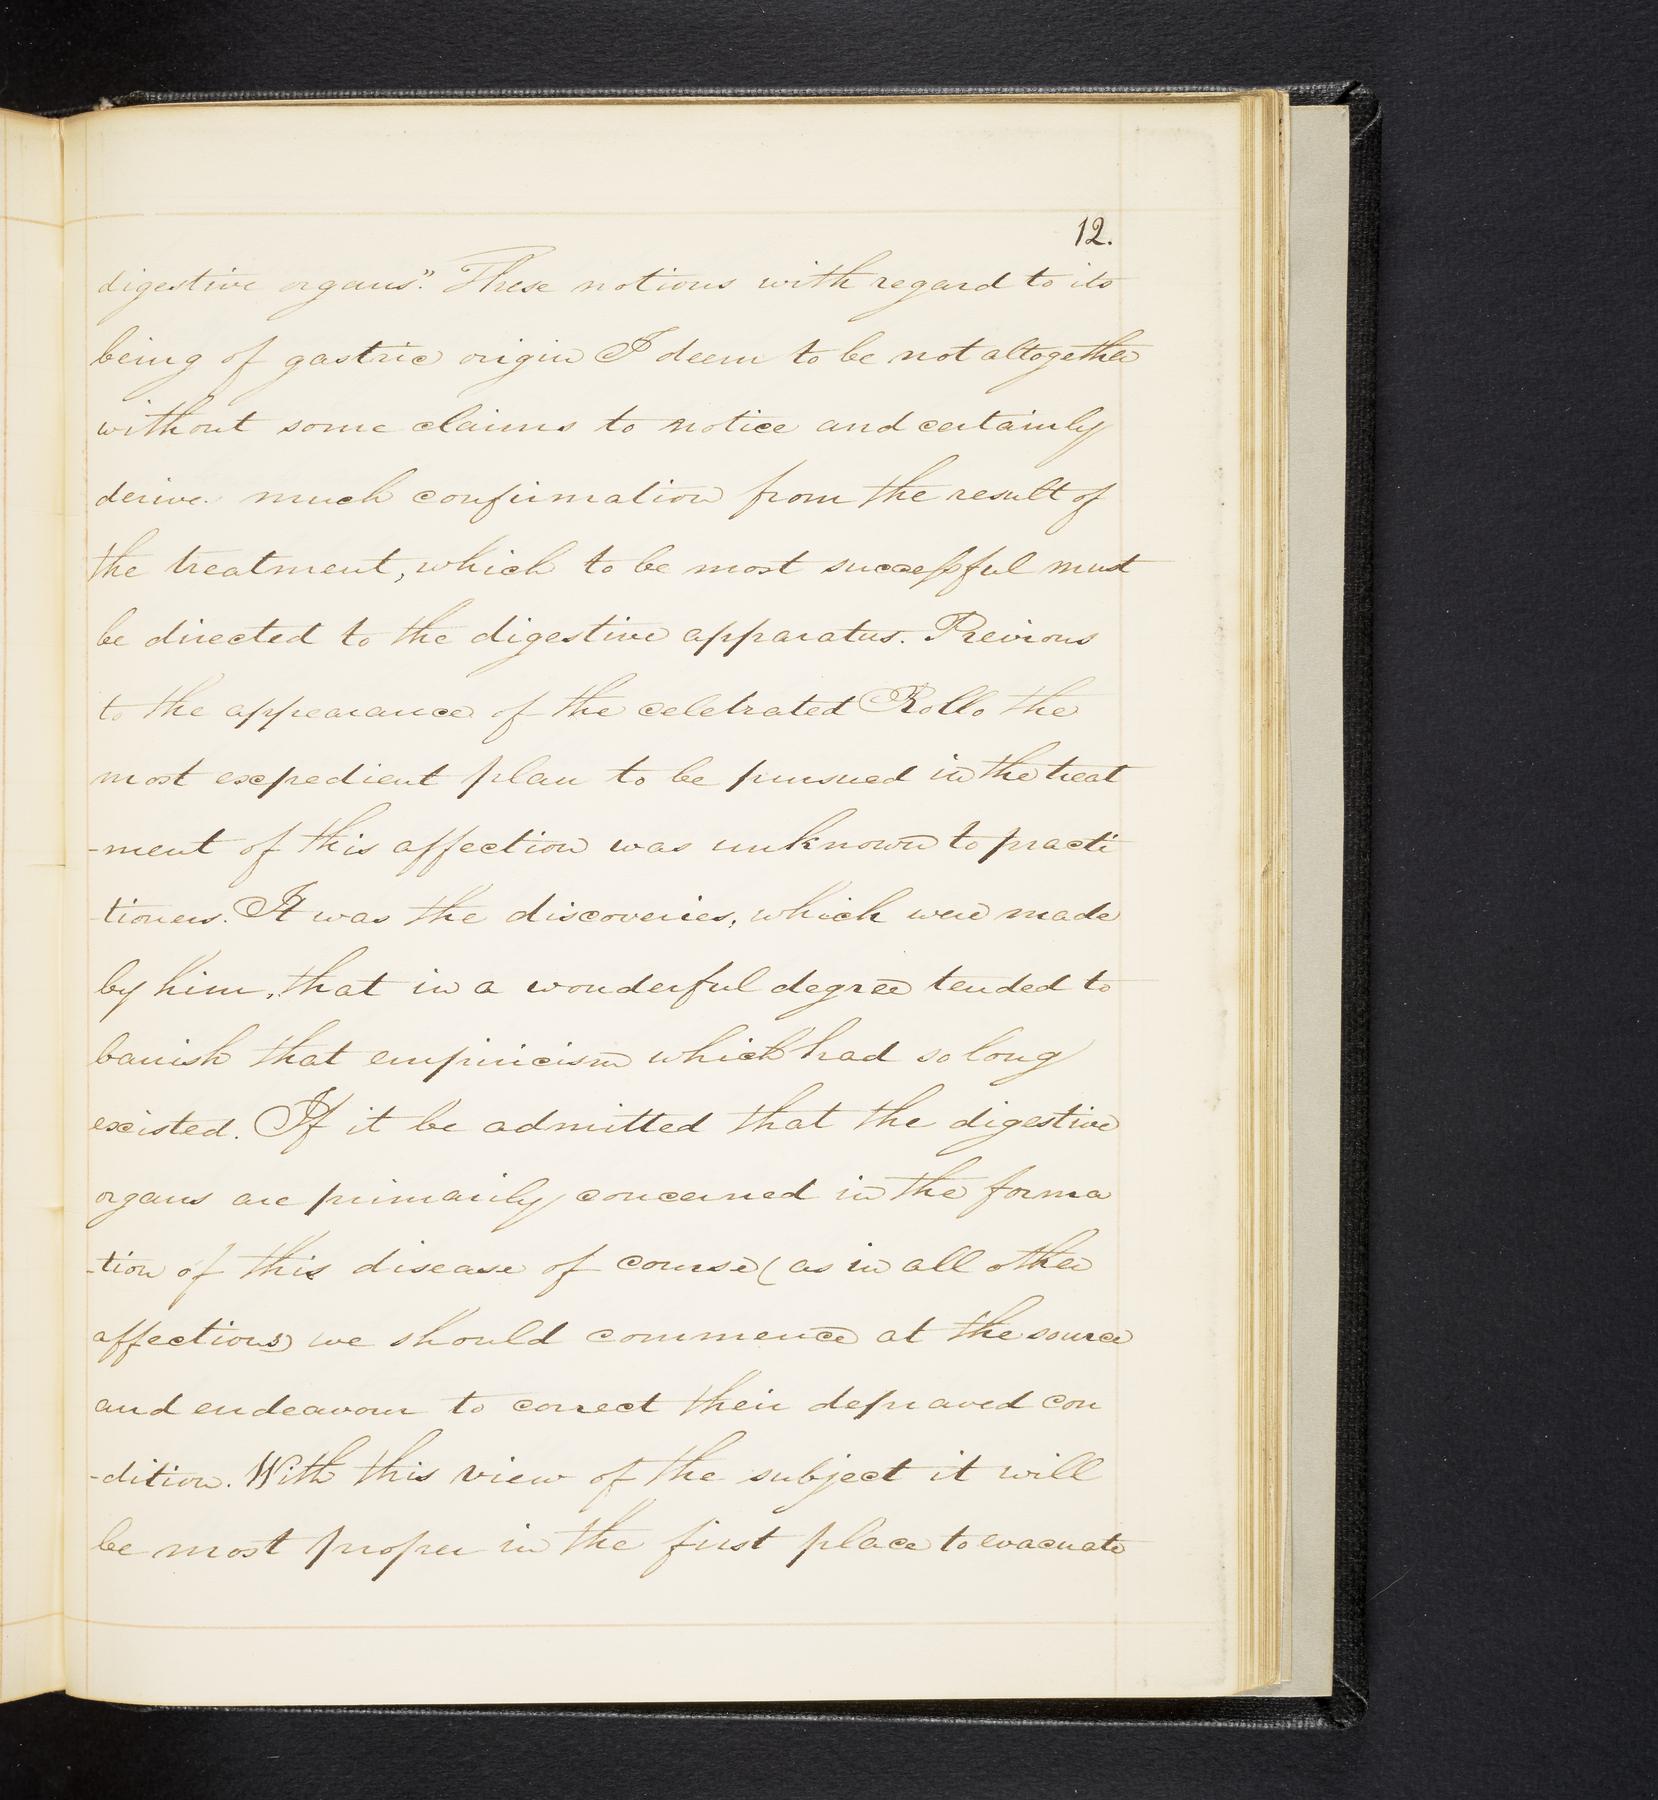 12.
digestive organs." These notions with regard to its
being of gastric origin I deem to be not altogether
without some claims to notice and certainly
derive much confirmation from the result of
the treatment, which to be most successful must
be directed to the digestive apparatus. Previous
to the appearance of the celebrated Rollo the
most expedient plan to be pursued in the treat
-ment of this affection was unknown to practi
-tioners. It was the discoveries, which were made
by him, that in a wonderful degree tended to
banish that empiricism which had so long
existed. If it be admitted that the digestive
organs are primarily concerned in the forma
-tion of this disease of course (as in all other
affections) we should commence at the source
and endeavour to correct their depraved con
-dition. With this view of the subject it will
be most proper in the first place to evacuate